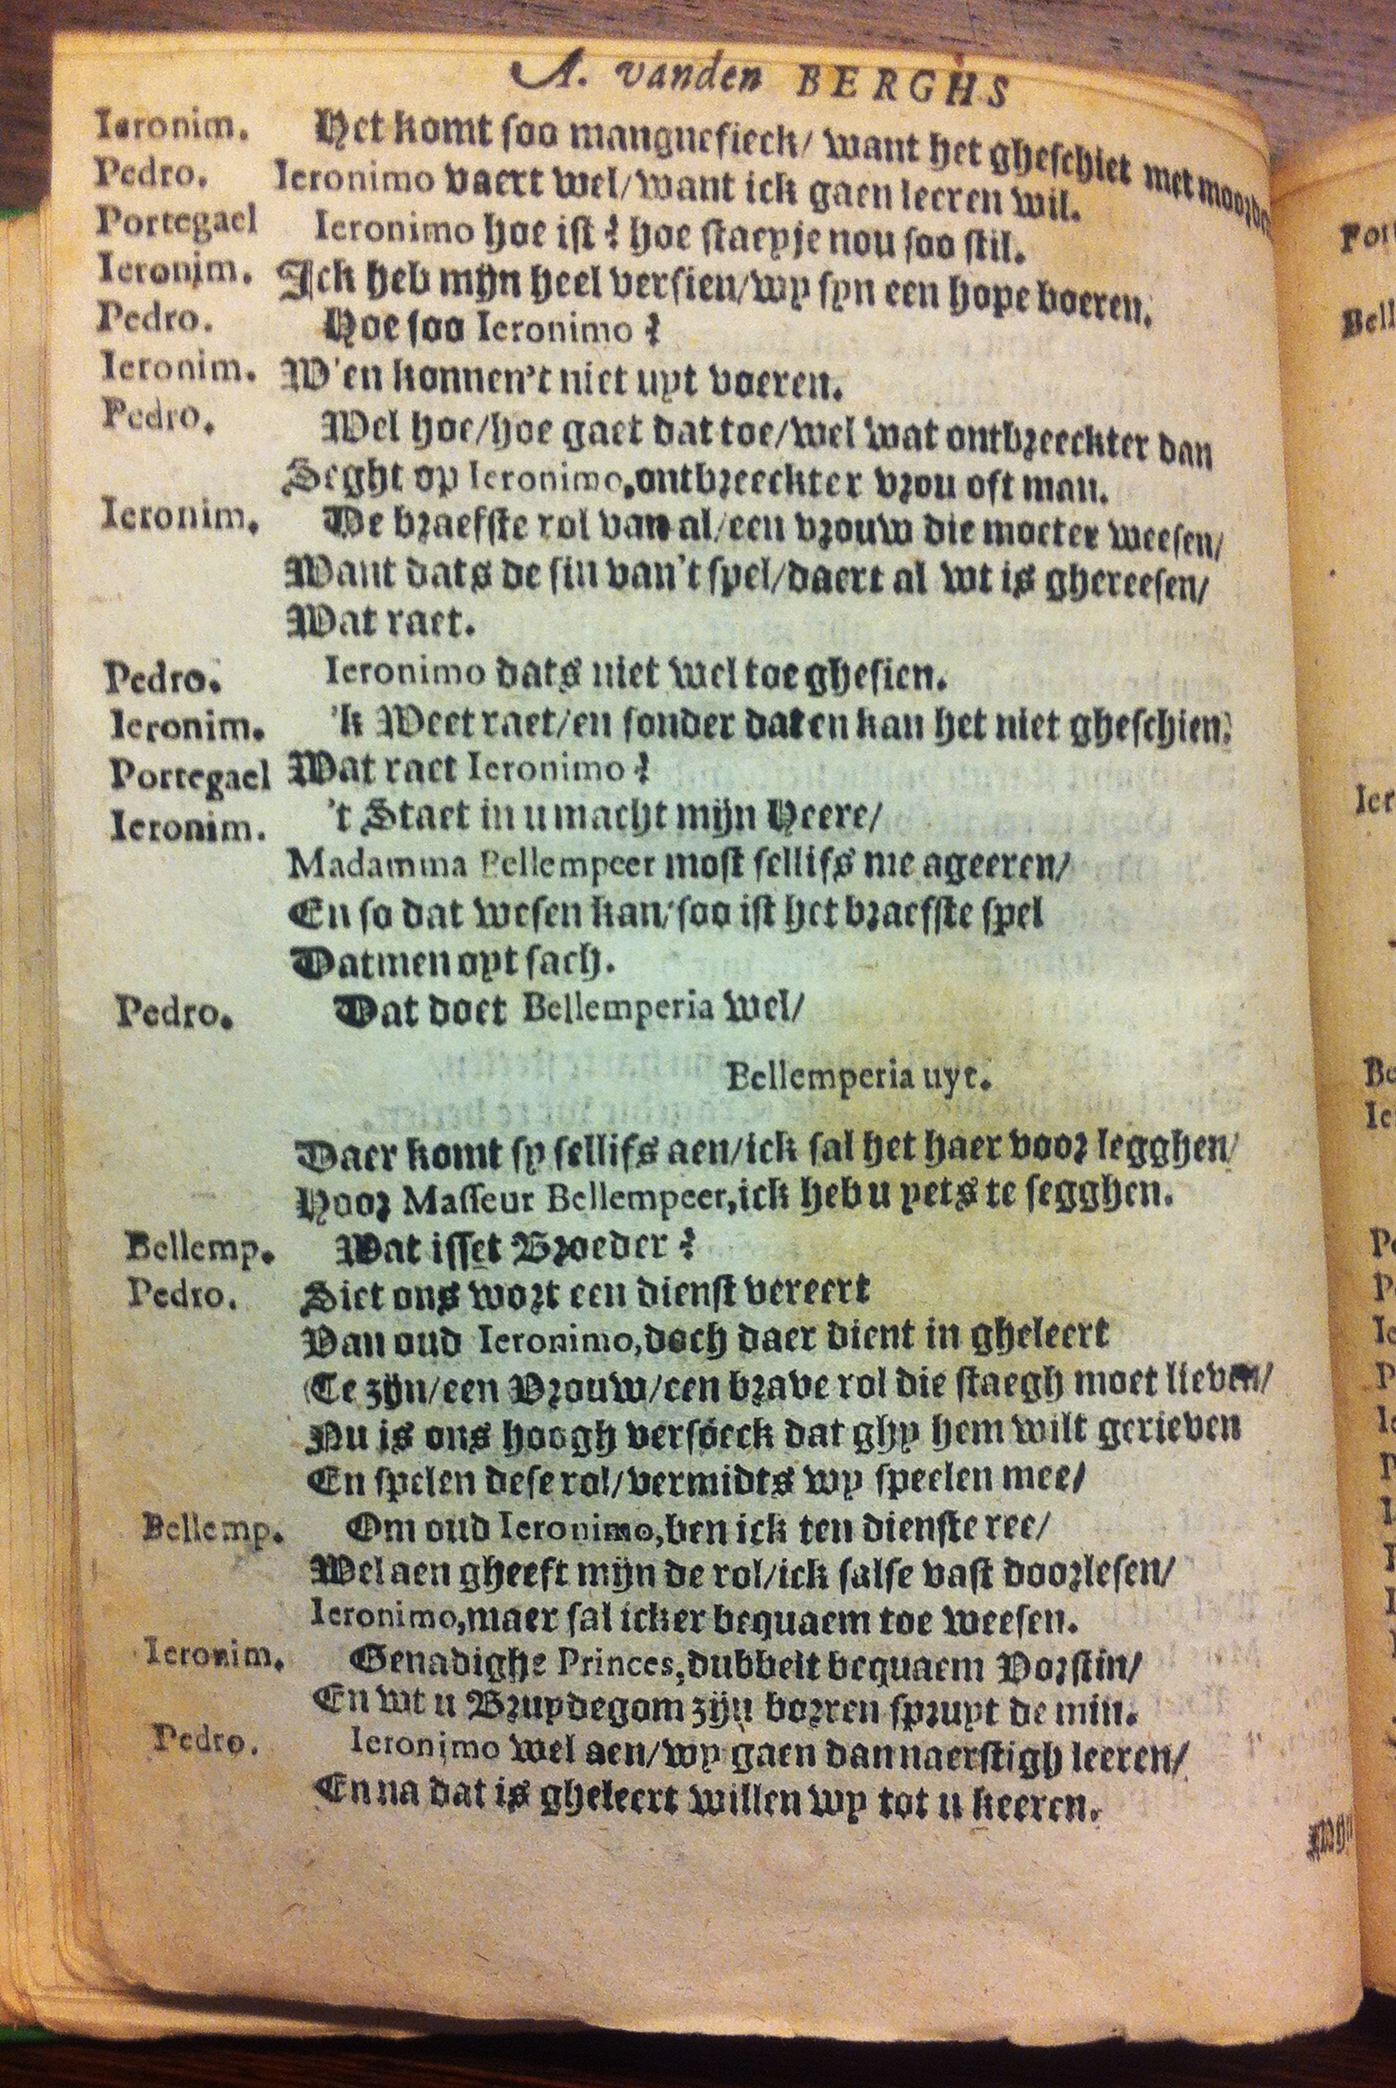 A. vanden BERGHS
Ieronim. Het komt soo mangnefieck/ want het gheschiet met
Pedro. Ieronimo vaert wel/want ick gaen leeren wil.
Portegael Ieronimo hoe ist? hoe staepje nou soo stil.
Ieronim. Ick heb mijn heel versien/wy syn een hope boeren.
Pedro. Hoe soo Ieronimo?
Ieronim. W'en konnen't niet uyt voeren.
Pedro. Wel hoe/hoe gaet dat toe/wel wat ontbreeckter dan
Seght op Ieronimo,ontbreeckter vrou oft man.
Ieronim. De braefste rol van al/een vrouw die moeter weesen/
Want dats de sin van't spel/daert al wt is ghereesen/
Wat raet.
Pedro. Ieronimo dats niet wel toe ghesien.
Ieronim. 'k Weet raet/en sonder dat en kan het niet gheschien.
Portegael Wat raet Ieronimo?
Ieronim. 't Staet in u macht mijn Heere/
Madamma Bellempeer most sellifs me ageeren/
En so dat wesen kan/soo ist het braefste spel
Datmen oyt sach.
Pedro. Dat doet Bellemperia wel/
Bellemperia uyt.
Daer komt sy sellifs aen/ick sal het haer voor legghen/
Hoor Masseur Bellempeer,ick heb u yets te segghen.
Bellemp. Wat isset Broeder?
Pedro. Siet ons wort een dienst vereert
Van oud Ieronimo,doch daer dient in gheleert
(Te zijn/een Vrouw/een brave rol die staegh moet lieven/
Nu is ons hoogh versoeck dat ghy hem wilt gerieven
En spelen dese rol/vermidts wy speelen mee/
Bellemp. Om oud Ieronimo,ben ick ten dienste ree/
Wel aen gheeft mijn de rol/ick salse vast doorlesen/
Ieronimo,maer sal icker bequaem toe weesen.
Ieronim. Genadighe Princes,dubbelt bequaem Vorstin/
En wt u Bruydegom zijn borren spruyt de min.
Pedro. Ieronimo wel aen/wy gaen dan naerstigh leeren/
En na dat is gheleert willen wy tot u keeren.